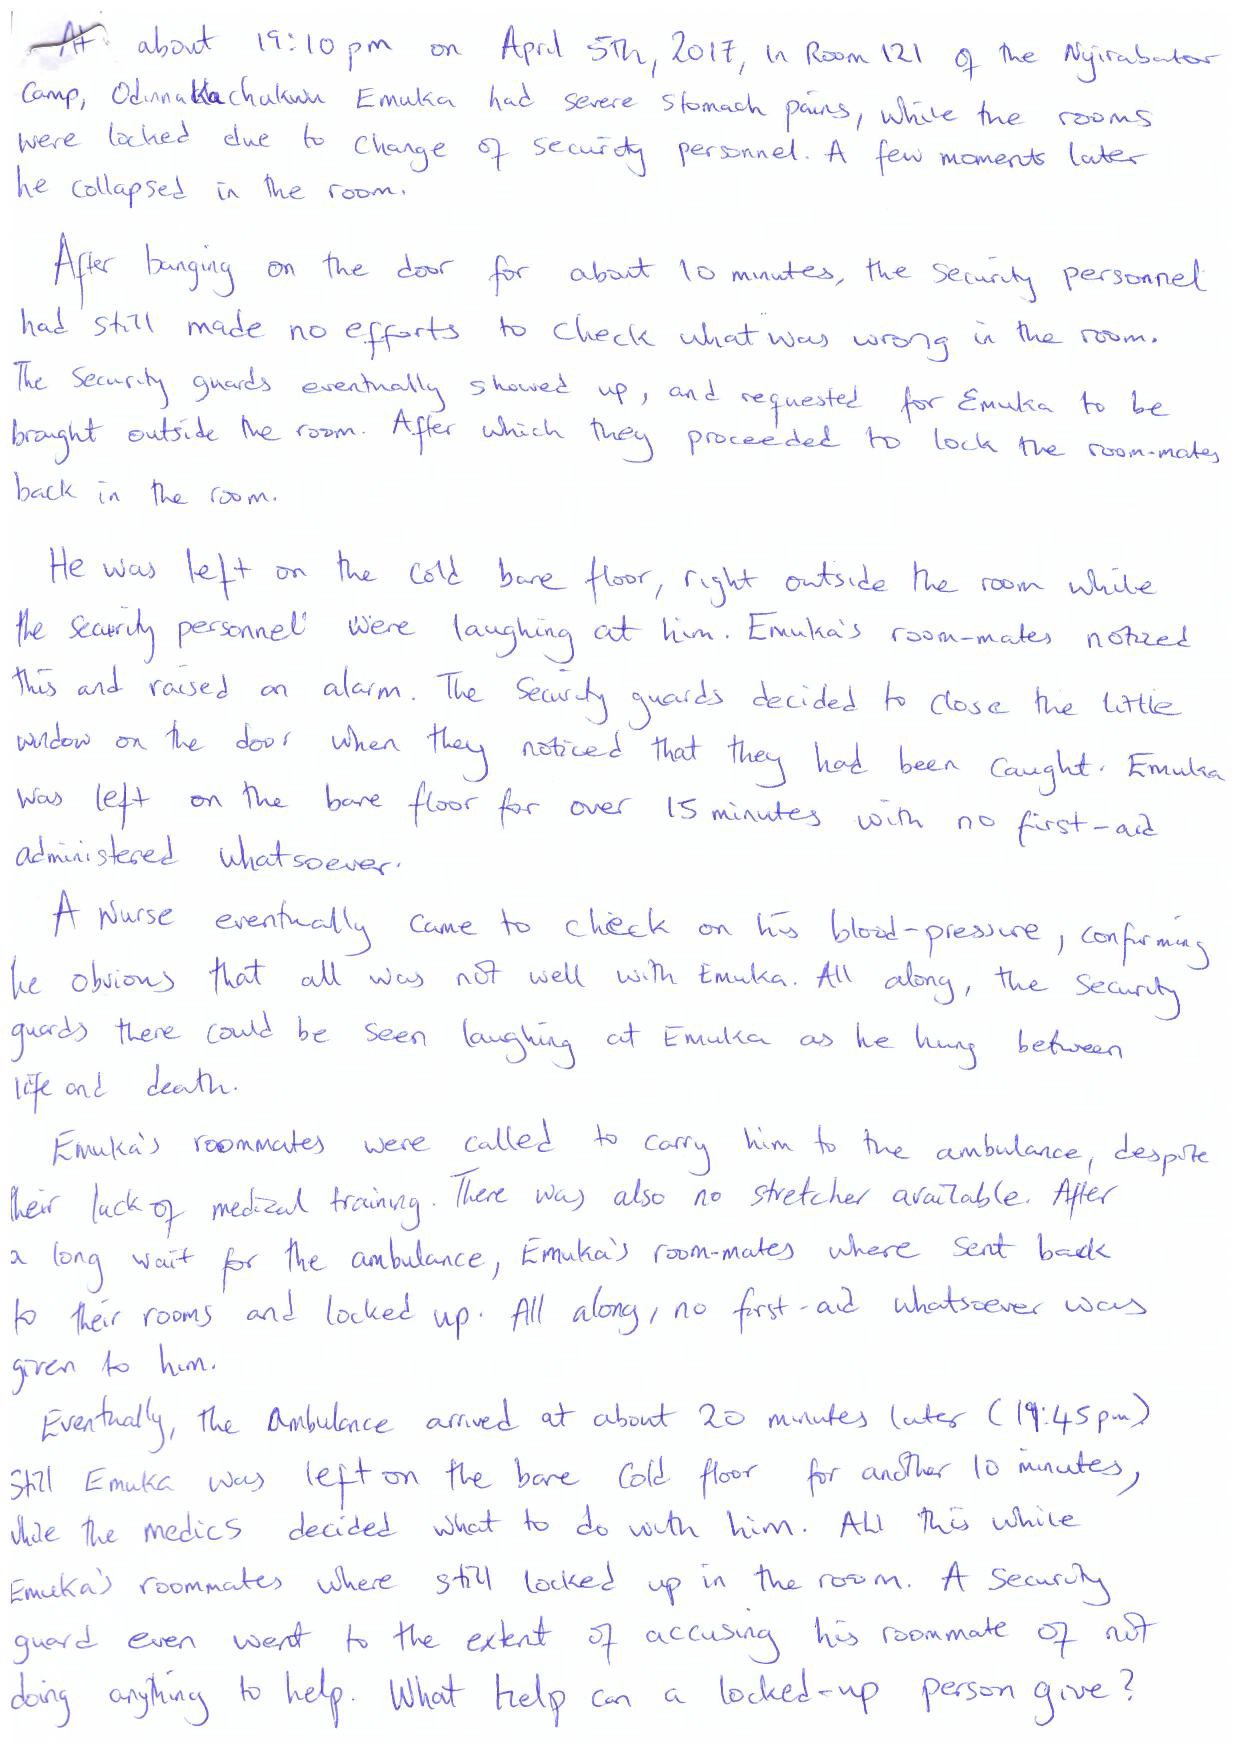 At about 19:10 pm on April 5th, 2017, in Room 121 of the Nyirabator
Camp, Odinnakachukwu Emuka had severe stomach pains, while the rooms
were locked due to change of security personnel. A few moments later
he collapsed in the room.
After banging on the door for about 10 minutes, the security personnel
had still made no efforts to check what was wrong in the room.
The security guards eventually showed up, and requested for Emuka to be
brought outside the room. After which they proceeded to lock the room-mates
back in the room.
He was left on the cold bare floor, right outside the room while
the security personnel were laughing at him. Emuka's room-mates noticed
this and raised an alarm. The security guards decided to close the little
window on the door when they noticed that they had been caught. Emuka
was left on the bare floor for over 15 minutes with no first-aid
administered whatsoever.
A Nurse eventually came to check on his blood-pressure, confirming
he obvious that all was not well with Emuka. All along, the security
guards there could be seen laughing at Emuka as he hung between
life and death.
Emuka's roommates were called to carry him to the ambulance, despite
their lack of medical training. There was also no stretcher available. After
a long wait for the ambulance, Emuka's room-mates where sent back
to their rooms and locked up. All along, no first-aid whatsoever was
given to him.
Eventually, the Ambulance arrived at about 20 minutes later (19:45pm)
Still Emuka was left on the bare cold floor for another 10 minutes,
while the medics decided what to do with him. All this while
Emuka's roommates where still locked up in the room. A security
guard even went to the extent of accusing his roommate of not
doing anything to help. What help can a locked-up person give?